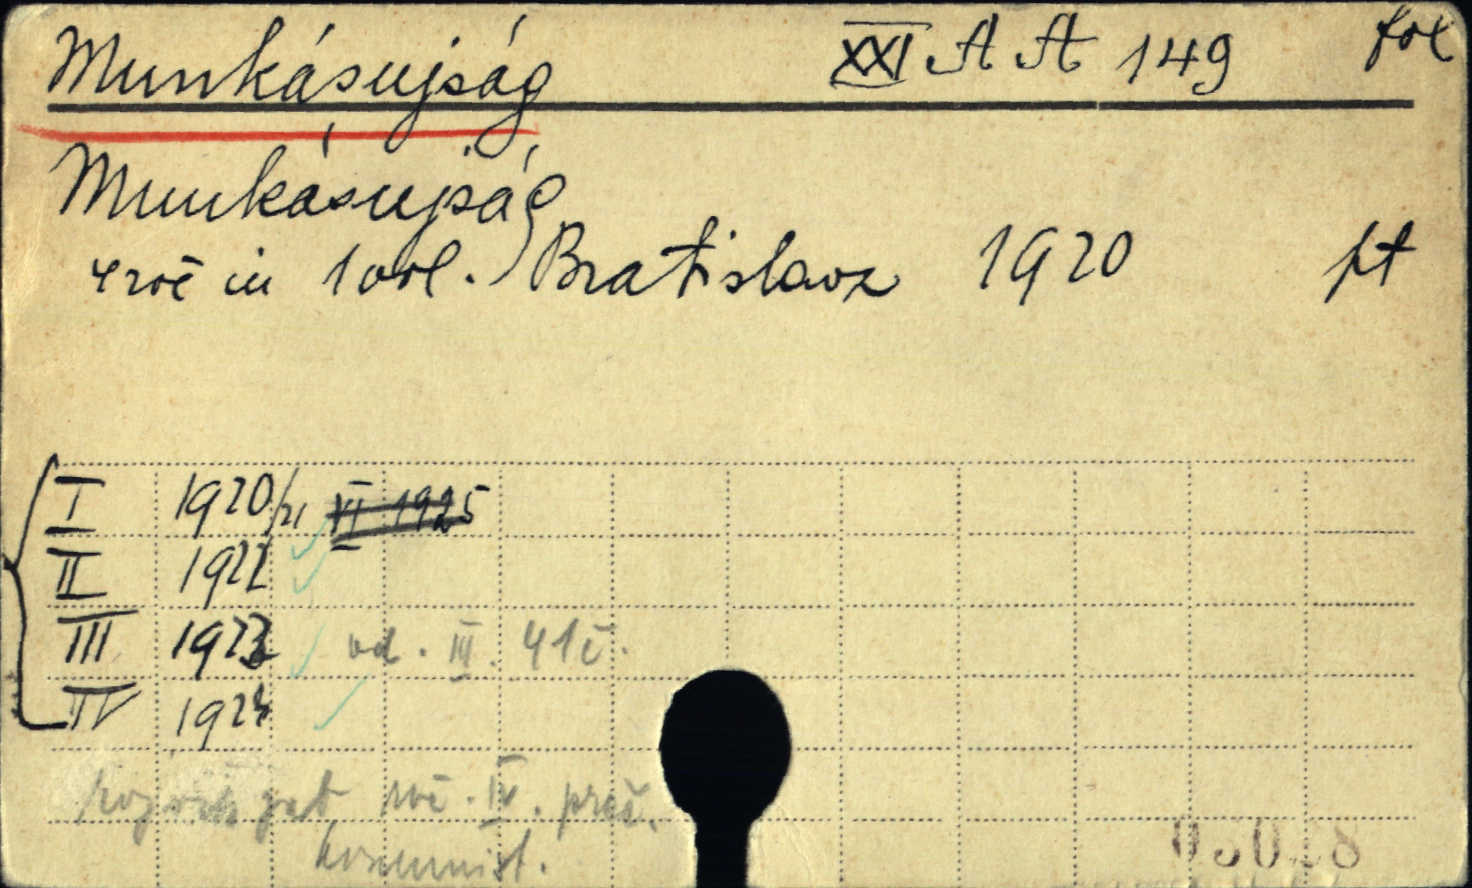 Munkásujság XXI A A 149 fol
Munkásujság
4 roč in 1 vol. Bratislava 1920 pt
I 1920/21 VI 1925
II 1922
III 1923 od. III. 41č.
IV 1924
roč. IV. preš.
komunist.